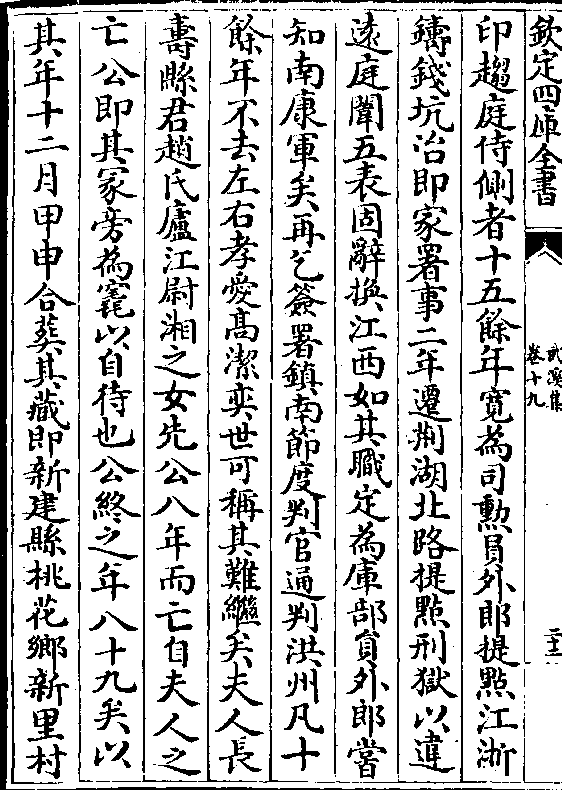 欽定四庫全書
武溪集
卷十九
二十三
印趨庭侍側者十五餘年寛為司勲員外郎提點江淛
鑄錢坑冶即家署事二年遷荆湖北路提㸃刑獄以違
逺庭闈五表固辭換江西如其職定為庫部員外郎嘗
知南康軍矣再乞簽署鎮南節度判官通判洪州凡十
餘年不去左右孝愛髙潔奕世可稱其難繼矣夫人長
壽縣君趙氏廬江尉湘之女先公八年而亡自夫人之
亡公即其冢旁為窀以自待也公終之年八十九矣以
其年十二月甲申合葬其藏即新建縣桃花鄉新里村